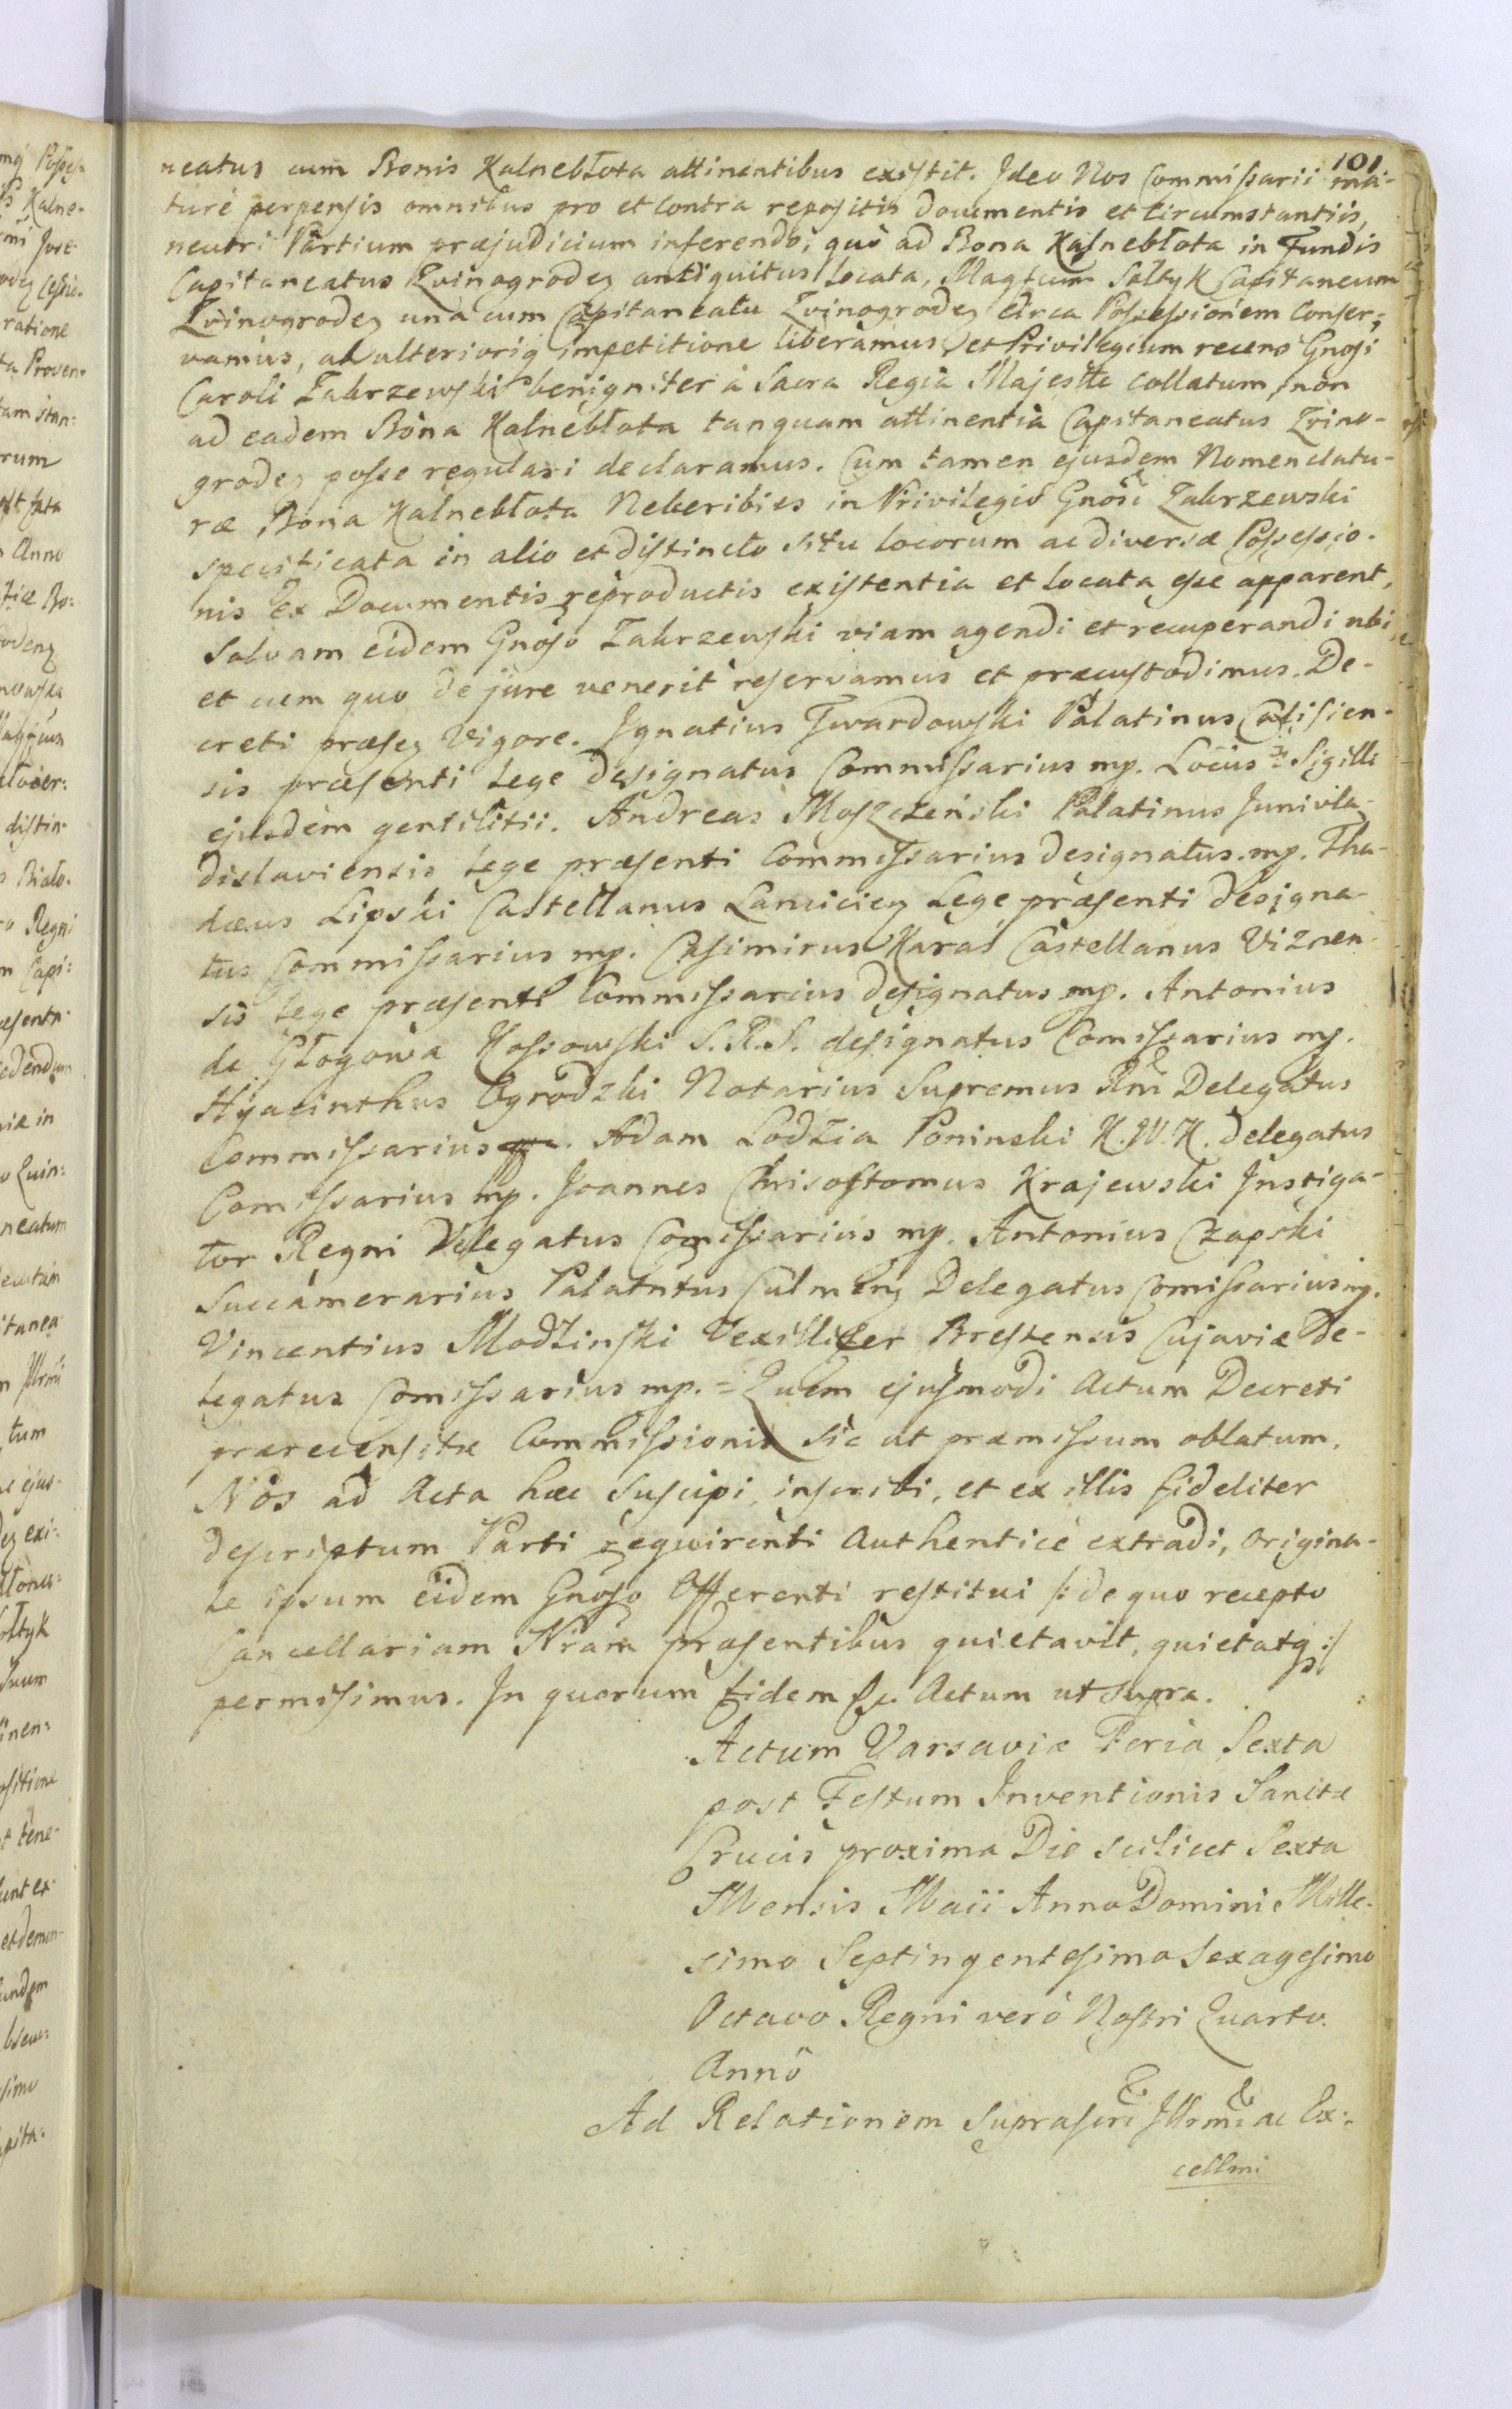 101
neatus cum Bonis Kalnebłota attinentibus existit. Ideo Nos Commissarii ma-
turé perpensis omnibus pro et contra repositis documentis et circumstantiis,
neutri Partium præjudicium inferendo, quò ad Bona Kalnebłota in Fundis
Capitaneatus Zvinogrodeȝ antiquitus locata, Magfcum Soltyk Capitaneum
Zvinogrodeȝ una cum Capitaneatu Zvinogrodeȝ circa Possessionem conser-
vamus, ab ulterioriȝ impetitione liberamus, et Privilegium recens Gnosi
Caroli Zakrzewski benigniter à Sacra Regia Majestte collatum, non
ad eadem Bona Kalnebłota tanquam attinentia Capitaneatus Zvino-
grodeȝ posse regulari declaramus. Cum tamen ejusdem Nomenclatu-
ræ Bona Kalnebłota Neberibies in Privilegio Gnosi Zakrzewski
specificata in alio et distincto situ locorum ac diversæ Possessio-
nis ex Documentis reproductis existentia et locata esse apparent,
salvam eidem Gnoso Zakrzewski viam agendi et recuperandi ubi
et cum quo de jure venerit reservamus et præcustodimus. De-
creti præseȝ vigore. Ignatius Twardowski Palatinus Calisien-
sis præsenti Lege designatus Commissarius mp. Locus Sigilli
ejusdem gentilitii. Andreas Moszczeński Palatinus Junivla-
dislaviensis Lege præsenti Commissarius designatus mp. Tha-
dæus Lipski Castellanus Lanicieȝ Lege præsenti designa-
tus Commissarius mp. Casimirus Karas Castellanus Viznen-
sis Lege præsenti Commissarius designatus mp. Antonius
de Głogowa Kossowski S. R. S. designatus Comissarius mp.
Hyacinthus Ogrodzki Notarius Supremus Rni Delegatus
Commissarius. Adam Lodzia Poninski K. W. K. delegatus
Comissarius mp. Joannes Chrisostomus Krajewski Instiga-
tor Regni Delegatus Comissarius mp. Antonius Czapski
Succamerarius Palatntus Culmenȝ Delegatus Comissarius mp.
Vincentius Modliński Vexillifer Brestensis Cujaviæ De-
legatus Comissarius mp. = Quem ejusmodi Actum Decreti
prærecensitæ Commissionis sic ut præmissum oblatum,
Nos ad Acta hæc suscipi, inscribi, et ex illis fideliter
descriptum Parti requirenti Authenticè extradi, Origina-
le ipsum eidem Gnoso Offerenti restitui /: de quo recepto
Cancellariam Nram præsentibus quietavit, quietatq :/
permisimus. In quorum fidem &c. Actum ut supra.
Actum Varsaviæ Feria Sexta
post Festum Inventionis Sanctæ
Crucis proxima Die scilicet Sexta
Mensis Maii Anno Domini Mille-
simo Septingentesimo Sexagesimo
Octavo Regni verò Nostri Quarto
Annó
Ad Relationem suprascri Illrmi ac Ex-
cellmi